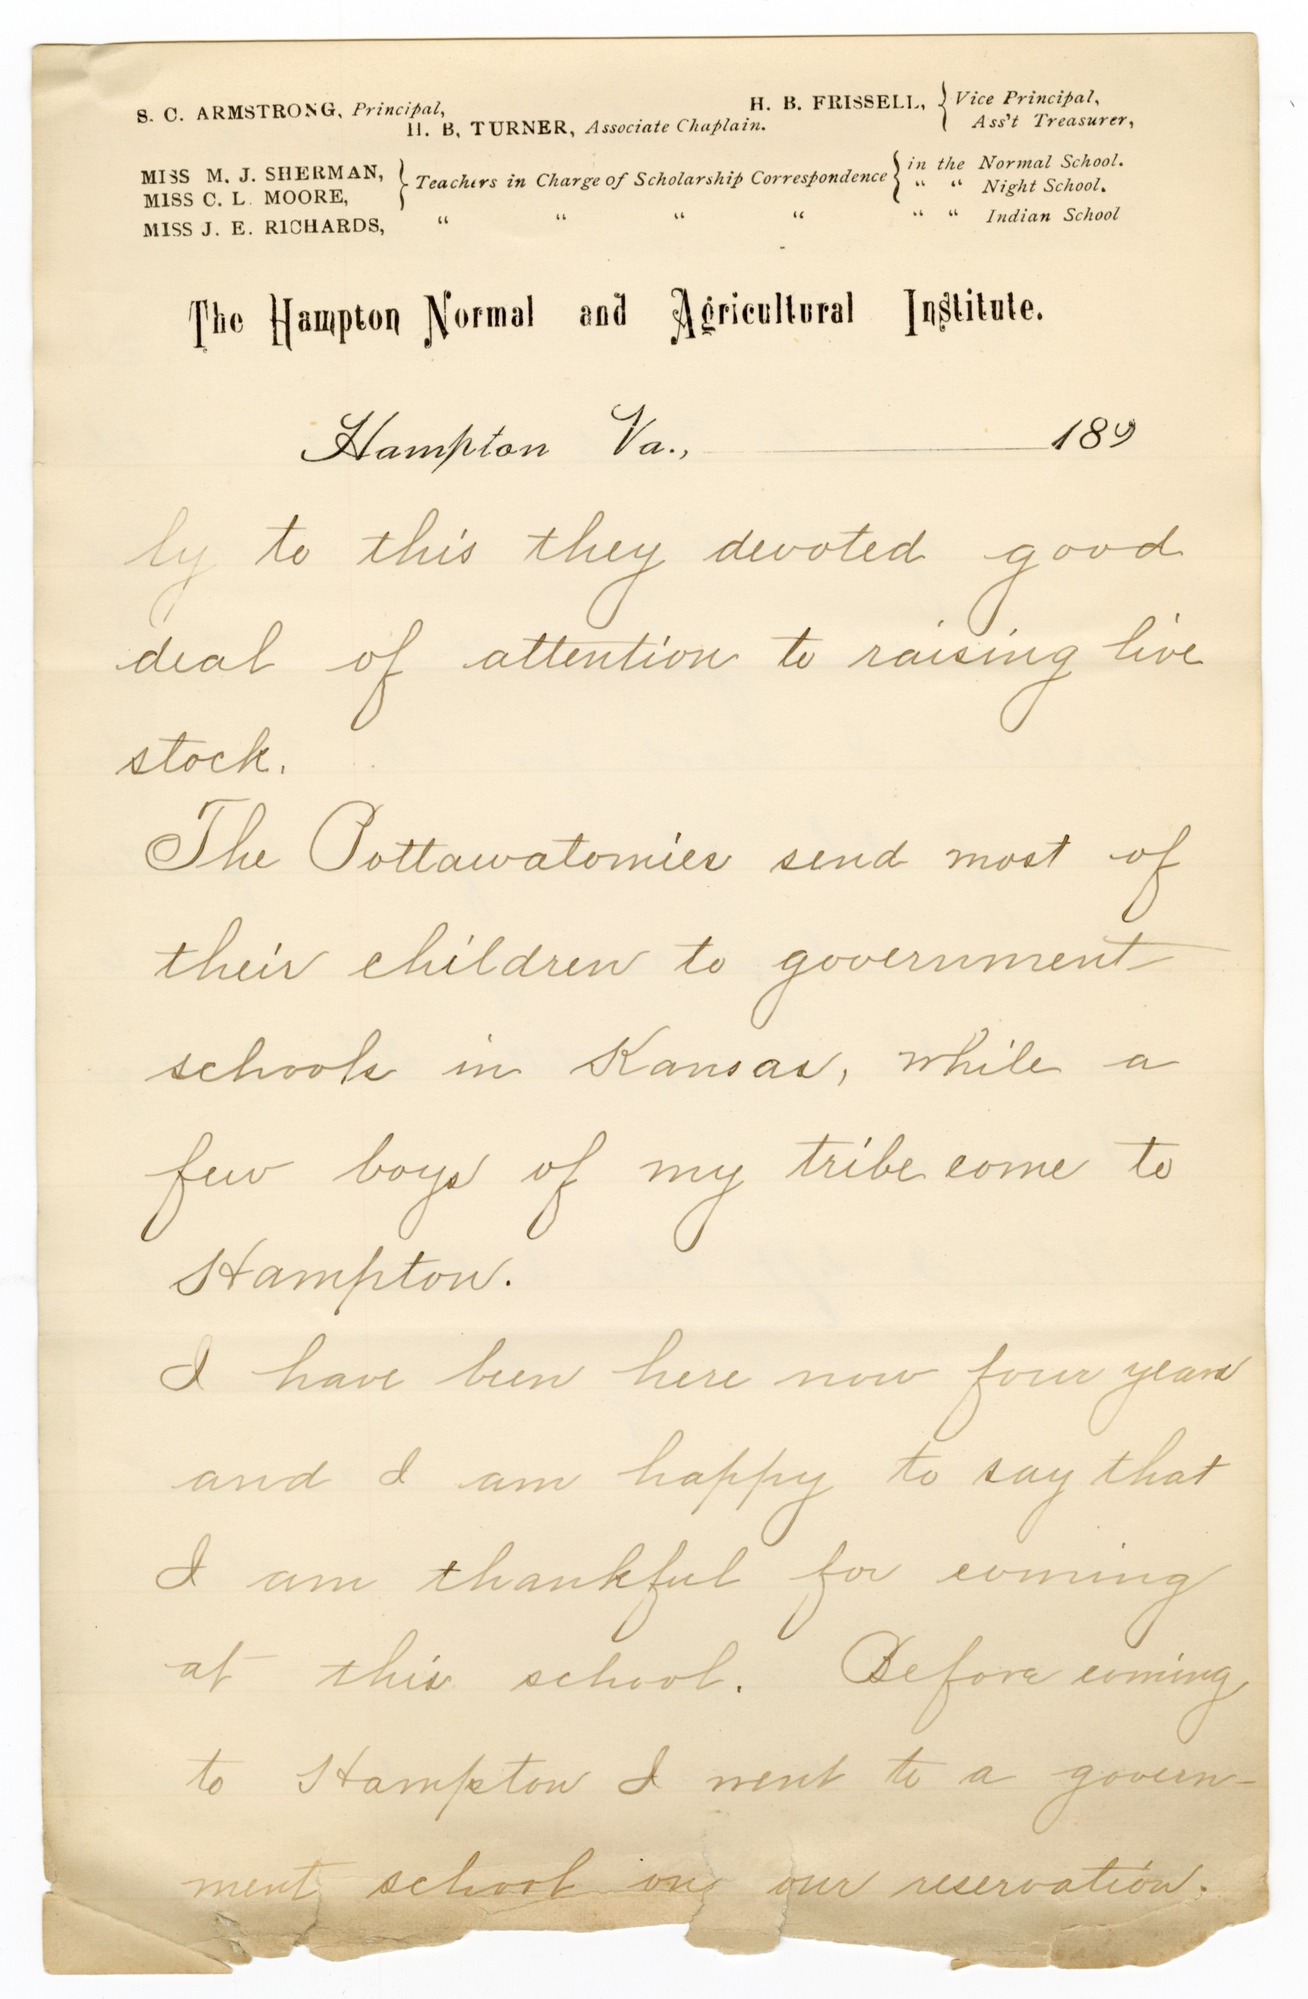 S. C. ARMSTRONG, Principal,
H. B. FRISSELL, { Vice Principal,
Ass't Treasurer,
H. B. TURNER, Associate Chaplain.
MISS M. J. SHERMAN,
MISS C. L. MOORE,
} Teachers in Charge of Scholarship Correspondence { in the Normal School.
" " Night School.
MISS J. E. RICHARDS, " " " " " " Indian School
The Hampton Normal and Agricultural Institute.
Hampton Va., 189
ly to this they devoted good
deal of attention to raising live
stock.
The Pottawatomies send most of
their children to government
schools in Kansas, while a
few boys of my tribe come to
Hampton.
I have been here now four years
and I am happy to say that
I am thankful for coming
at this school. Before coming
to Hampton I went to a govern-
ment school on our reservation.